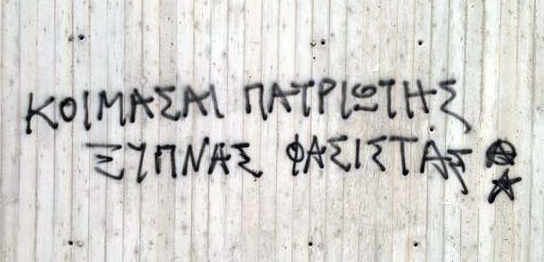 ΚΟΙΜΑΣΑΙ ΠΑΤΡΙΩΤΗΣ
ΞΥΠΝΑΣ ΦΑΣΙΣΤΑΣ